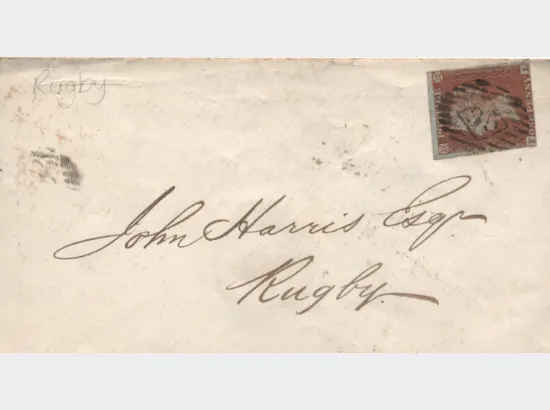 Rugby
John Harris Esqr
Rugby